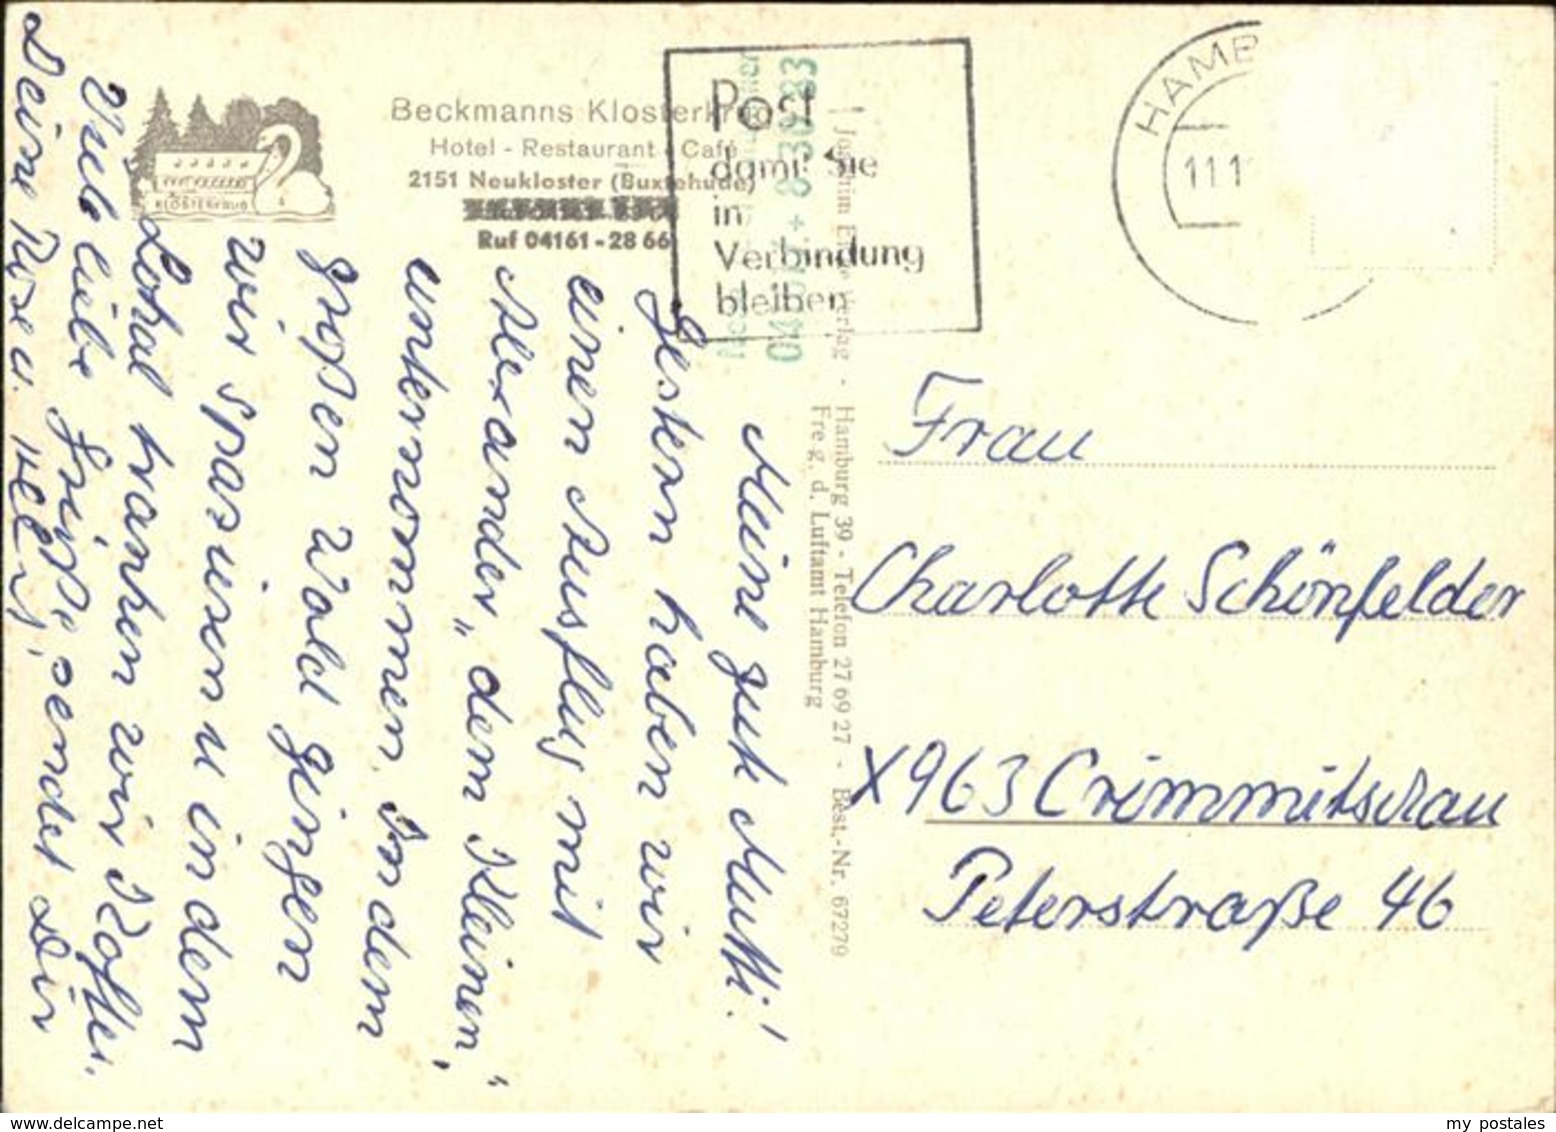 KLOSTERKRUG
Beckmanns Klosterkrug
Hotel - Restaurant - Café
2151 Neukloster (Buxtehude)
Ruf 04161 - 28 66
Post
damit Sie
in
Verbindung
bleiben
HAMB
11.1
04161 + 8 30 83
Joachim Verlag - Hamburg 39 - Telefon 27 69 27 - Best.-Nr. 67279
Freg. d. Luftamt Hamburg
Meine gute Mutti!
Gestern haben wir
einen Ausflug mit
Alexander „dem Kleinen"
unternommen. In dem
großen Wald gingen
wir spazieren u. in dem
Lokal tranken wir Kaffee.
Viele liebe Grüße sendet Dir
Deine
Frau
Charlotte Schönfelder
X963 Crimmitschau
Peterstraße 46
www.delcampe.net
my postales